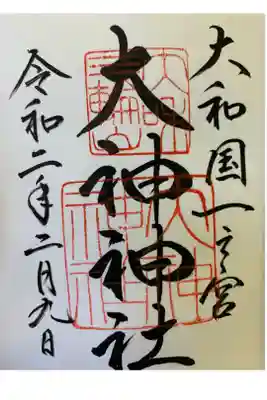 大和国一之宮
大神神社
令和二年二月九日
大神
神社